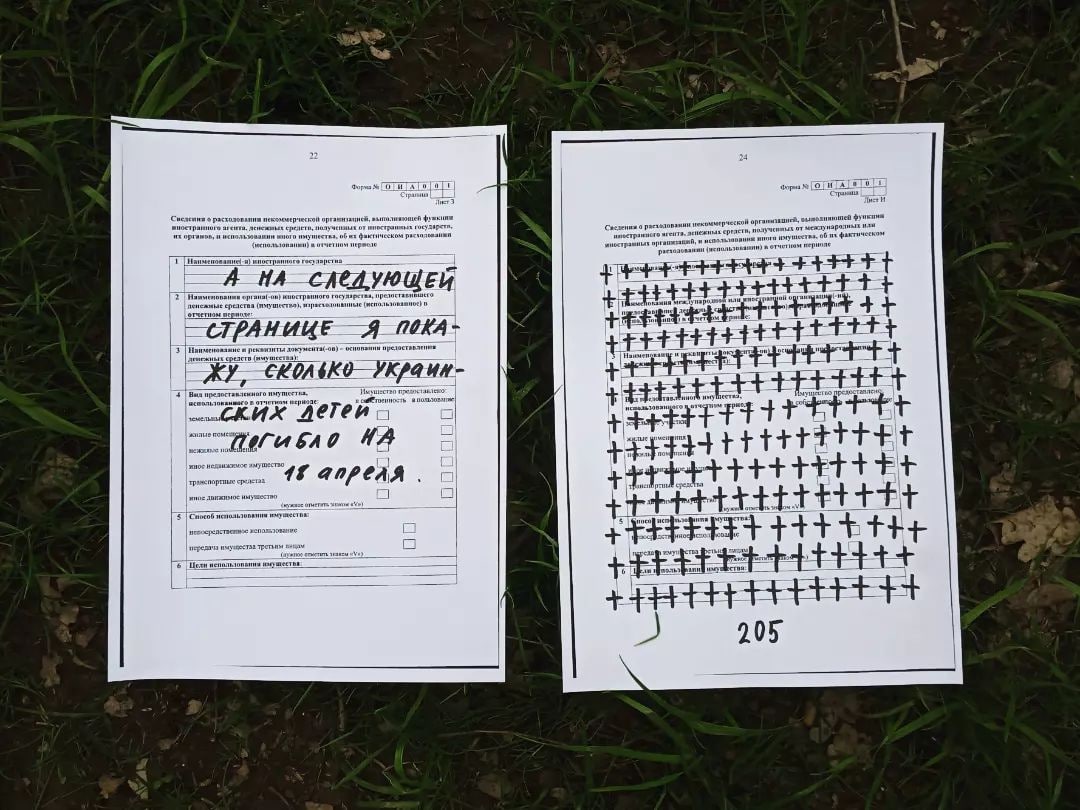 22
Форма № О И А 0 0 1
Страница
Лист З
Сведения о расходовании некоммерческой организацией, выполняющей функции
иностранного агента, денежных средств, полученных от иностранных государств,
их органов, и использовании иного имущества, об их фактическом расходовании
(использовании) в отчетном периоде
1 Наименование(-я) иностранного государства
А НА СЛЕДУЮЩЕЙ
2 Наименования органа(-ов) иностранного государства, предоставившего
денежные средства (имущество), израсходованные (использованное) в
отчетном периоде:
СТРАНИЦЕ Я ПОКА-
3 Наименование и реквизиты документа(-ов) - основания предоставления
денежных средств (имущества):
ЖУ, СКОЛЬКО УКРАИН-
4 Вид предоставленного имущества,
использованного в отчетном периоде:
Имущество предоставлено:
в собственность в пользование
СКИХ ДЕТЕЙ
земельные
жилые помещения
ПОГИБЛО НА
нежилые помещения
иное недвижимое имущество
18 апреля.
транспортные средства
иное движимое имущество
(нужное отметить знаком «V»)
5 Способ использования имущества:
непосредственное использование
передача имущества третьим лицам
(нужное отметить знаком «V»)
6 Цели использования имущества:
24
Форма № О И А 0 0 1
Страница
Лист И
Сведения о расходовании некоммерческой организацией, выполняющей функции
иностранного агента, денежных средств, полученных от международных или
иностранных организаций, и использовании иного имущества, об их фактическом
расходовании (использовании) в отчетном периоде
3 Наименование и реквизиты документа(-ов) - основания предоставления
Вид предоставленного имущества,
использованного в отчетном периоде:
Имущество предоставлено:
земельные участки
жилые помещения
нежилые помещения
иное недвижимое
транспортные средства
иное движимое имущество
(нужное отметить знаком «V»)
5 Способ использования имущества:
непосредственное использование
передача имущества третьим лицам
6 Цели использования имущества:
205